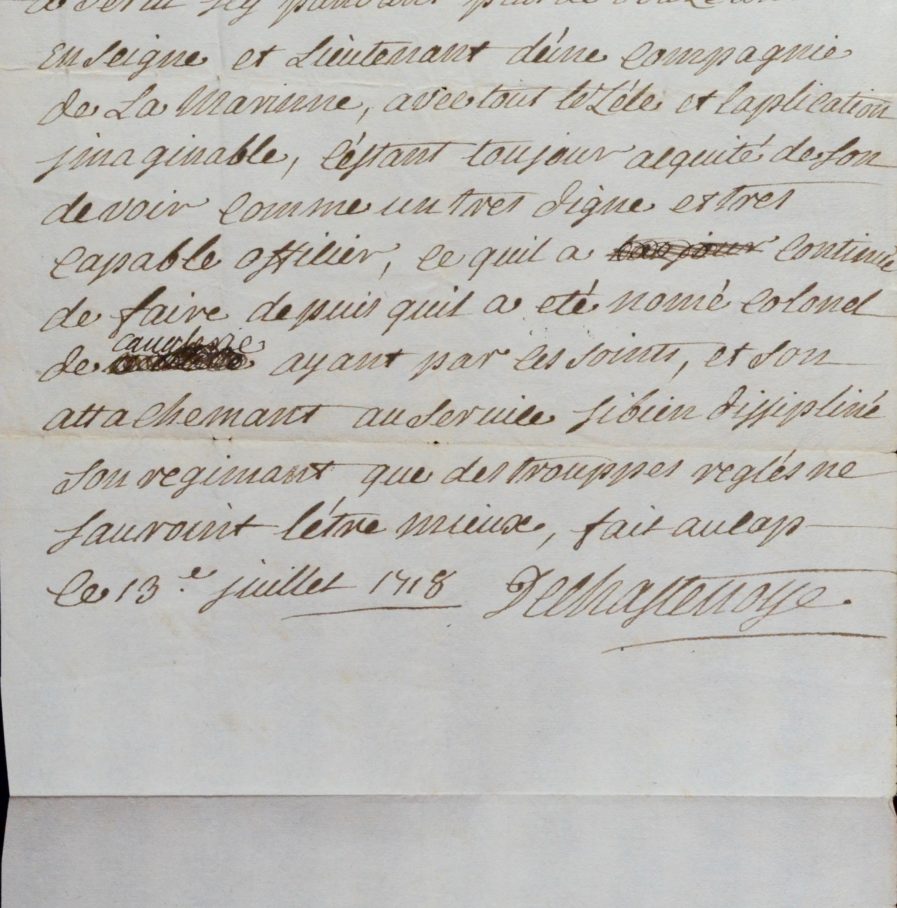 a servit icy pandant plus de
Enseigne et Lieutenant d'une Compagnie
de La Marinne, avec tout le Zéle et laplication
jmaginable, C'éstant toujour acquité de Son
devoir Comme un tres digne et tres
Capable officier, ce quil a toujour Continué
de faire depuis quil a eté nomé Colonel
de ayant par ces Soints, et Son
attachemant au Service sibien dissipliné
Son regimant que des trouppes reglés ne
Sauroint l'étre mieux, fait au Cap
Ce 13.e juillet 1718 DeChastenoye.